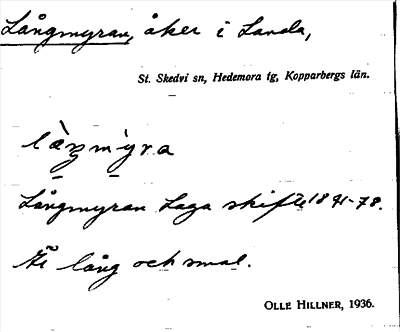 Långmyran, åker i Landa,
St. Skedvi sn, Hedemora tg, Kopparbergs län.
làŋmỳra
Långmyran Laga skifte 1871-78.
Är lång och smal.
OLLE HILLNER, 1936.